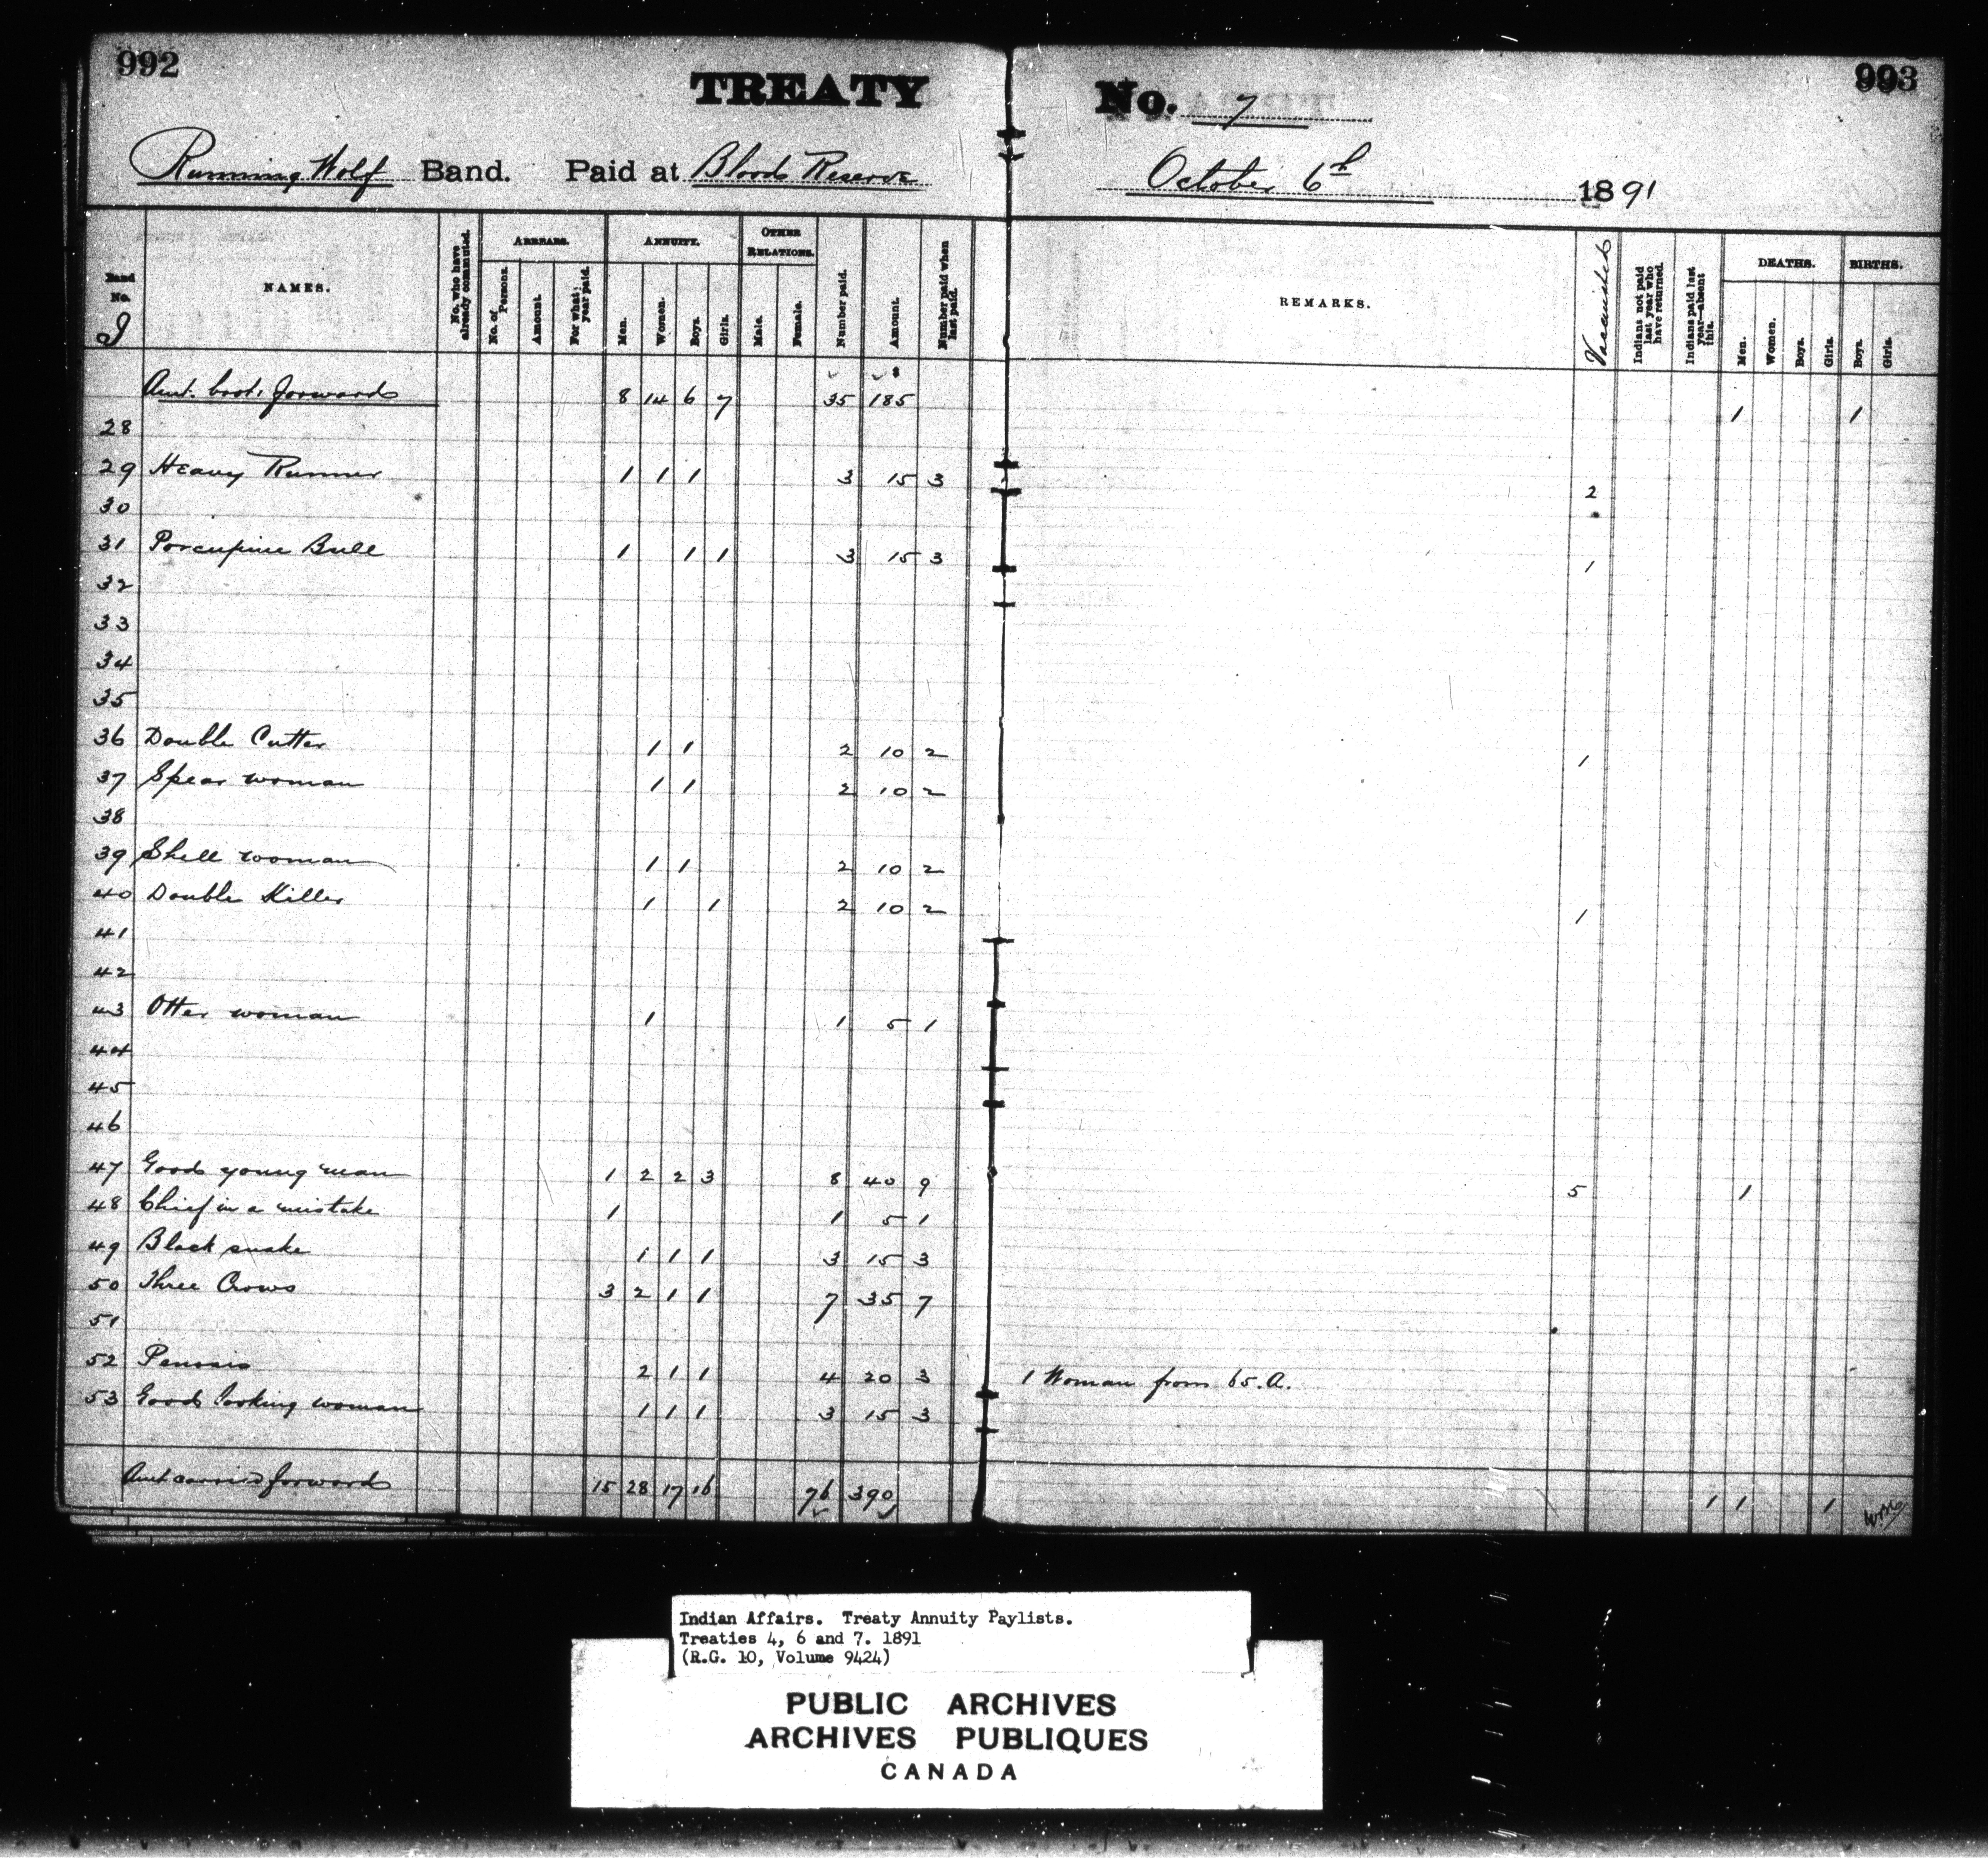 992
993
TREATY No. 7
Running Wolf Band. Paid at Bloods Reserve October 6th 1891
Band No. NAMES. No. who have already commuted. ARREARS. No. of Person. Amount. For what year paid. ANNUITY. Men. Women. Boys. Girls. OTHER RELATIONS. Male. Female. Number paid. Amount. Number paid when last paid. REMARKS. Vaccinated Indians not paid last year who have returned. Indians paid last year—absent this. DEATHS. Men. Women. Boys. Girls. BIRTHS. Boys. Girls.
Amt. brot. forwards 8 14 6 7 35 185 1 1
28
29 Heavy Runner 1 1 1 3 15 3 2
30
31 Porcupine Bull 1 1 1 3 15 3 1
32
33
34
35
36 Double Cutter 1 1 2 10 2 1
37 Spear woman 1 1 2 10 2
38
39 Shell woman 1 1 2 10 2
40 Double Killer 1 1 2 10 2 1
41
42
43 Otter woman 1 1 5 1
44
45
46
47 Good young man 1 2 2 3 8 40 9 5 1
48 Chief in a mistake 1 1 5 1
49 Black snake 1 1 1 3 15 3
50 Three Crows 3 2 1 1 7 35 7
51
52 2 1 1 4 20 3 1 Woman from 65.A.
53 Good looking woman 1 1 1 3 15 3
Amt carried forwards 15 28 17 16 76 390 1 1 1
Indian Affairs. Treaty Annuity Paylists.
Treaties 4, 6 and 7. 1891
(R.G. 10, Volume 9424)
PUBLIC ARCHIVES
ARCHIVES PUBLIQUES
CANADA